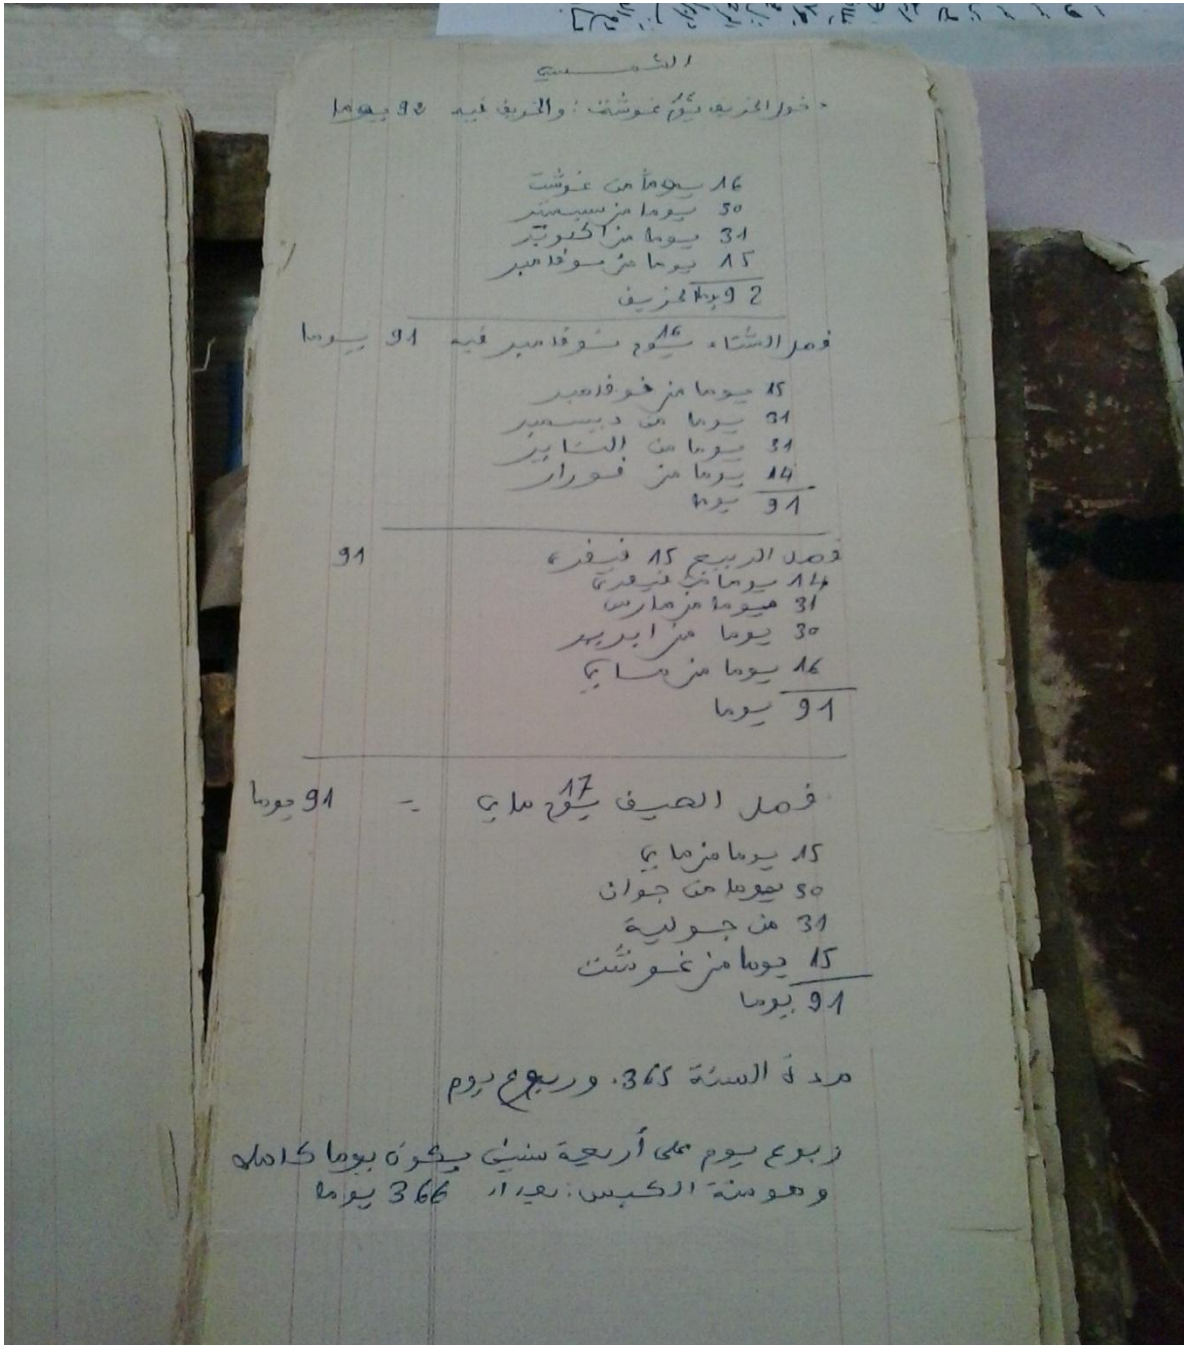 الشمسي
دخول الخريف يوم غوشت: والخريف فيه 92 يوما
16 يوما من غوشت
30 يوما من سبتمبر
31 يوما من اكتوبر
15 يوما من نوفامبر
92 يوما لخريف
فصل الشتاء يوم 16 نوفامبر فيه 91 يوما
15 يوما من نوفامبر
31 يوما من ديسمبر
31 يوما من الناير
14 يوما من فورار
91 يوما
فصل الربيع 15 فيفري 91
14 يوما من فيفري
31 يوما من مارس
30 يوما من ابريل
16 يوما من ماي
91 يوما
فصل الصيف يوم 17 ماي = 91 يوما
15 يوما من ماي
30 يوما من جوان
31 من جولية
15 يوما من غوشت
91 يوما
مدة السنة 365. وربوع يوم
ربوع يوم على أربعة سنين يكون يوما كامله
وهو سنة الكبس: 366 يوما